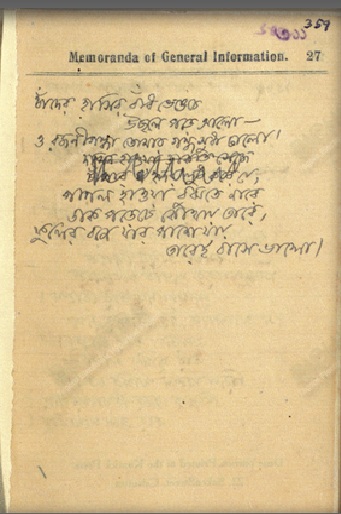 359
Memoranda of General Information. 27
চাঁদের হাসির বাঁধ ভেঙেছে
উছলে পড়ে আলো—
ও রজনীগন্ধা তোমার গন্ধসুধা ঢালো।
পাগল হাওয়া বুঝতে নারে
ডাক পড়েছে কোথায় তারে,
ফুলের বনে যার পাশে যায়
তারেই ভালো।